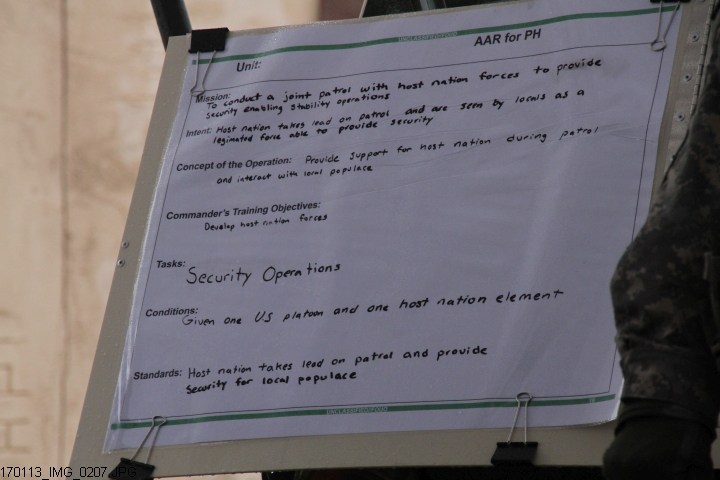 UNCLASSIFIED//FOUO
AAR for PH
Unit:
Mission:
To conduct a joint patrol with host nation forces to provide
security enabling stability operations
Intent: Host nation takes lead on patrol and are seen by locals as a
legimated force able to provide security
Concept of the Operation: Provide support for host nation during patrol
and interact with local populace
Commander's Training Objectives:
Develop host nation forces
Tasks: Security Operations
Conditions:
Given one US platoon and one host nation element
Standards: Host nation takes lead on patrol and provide
security for local populace
UNCLASSIFIED//FOUO
170113_IMG_0207.JPG